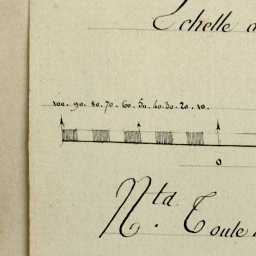 Echelle
100. 90. 80. 70. 60. 50. 40. 30. 20. 10.
0
N.ta Toute